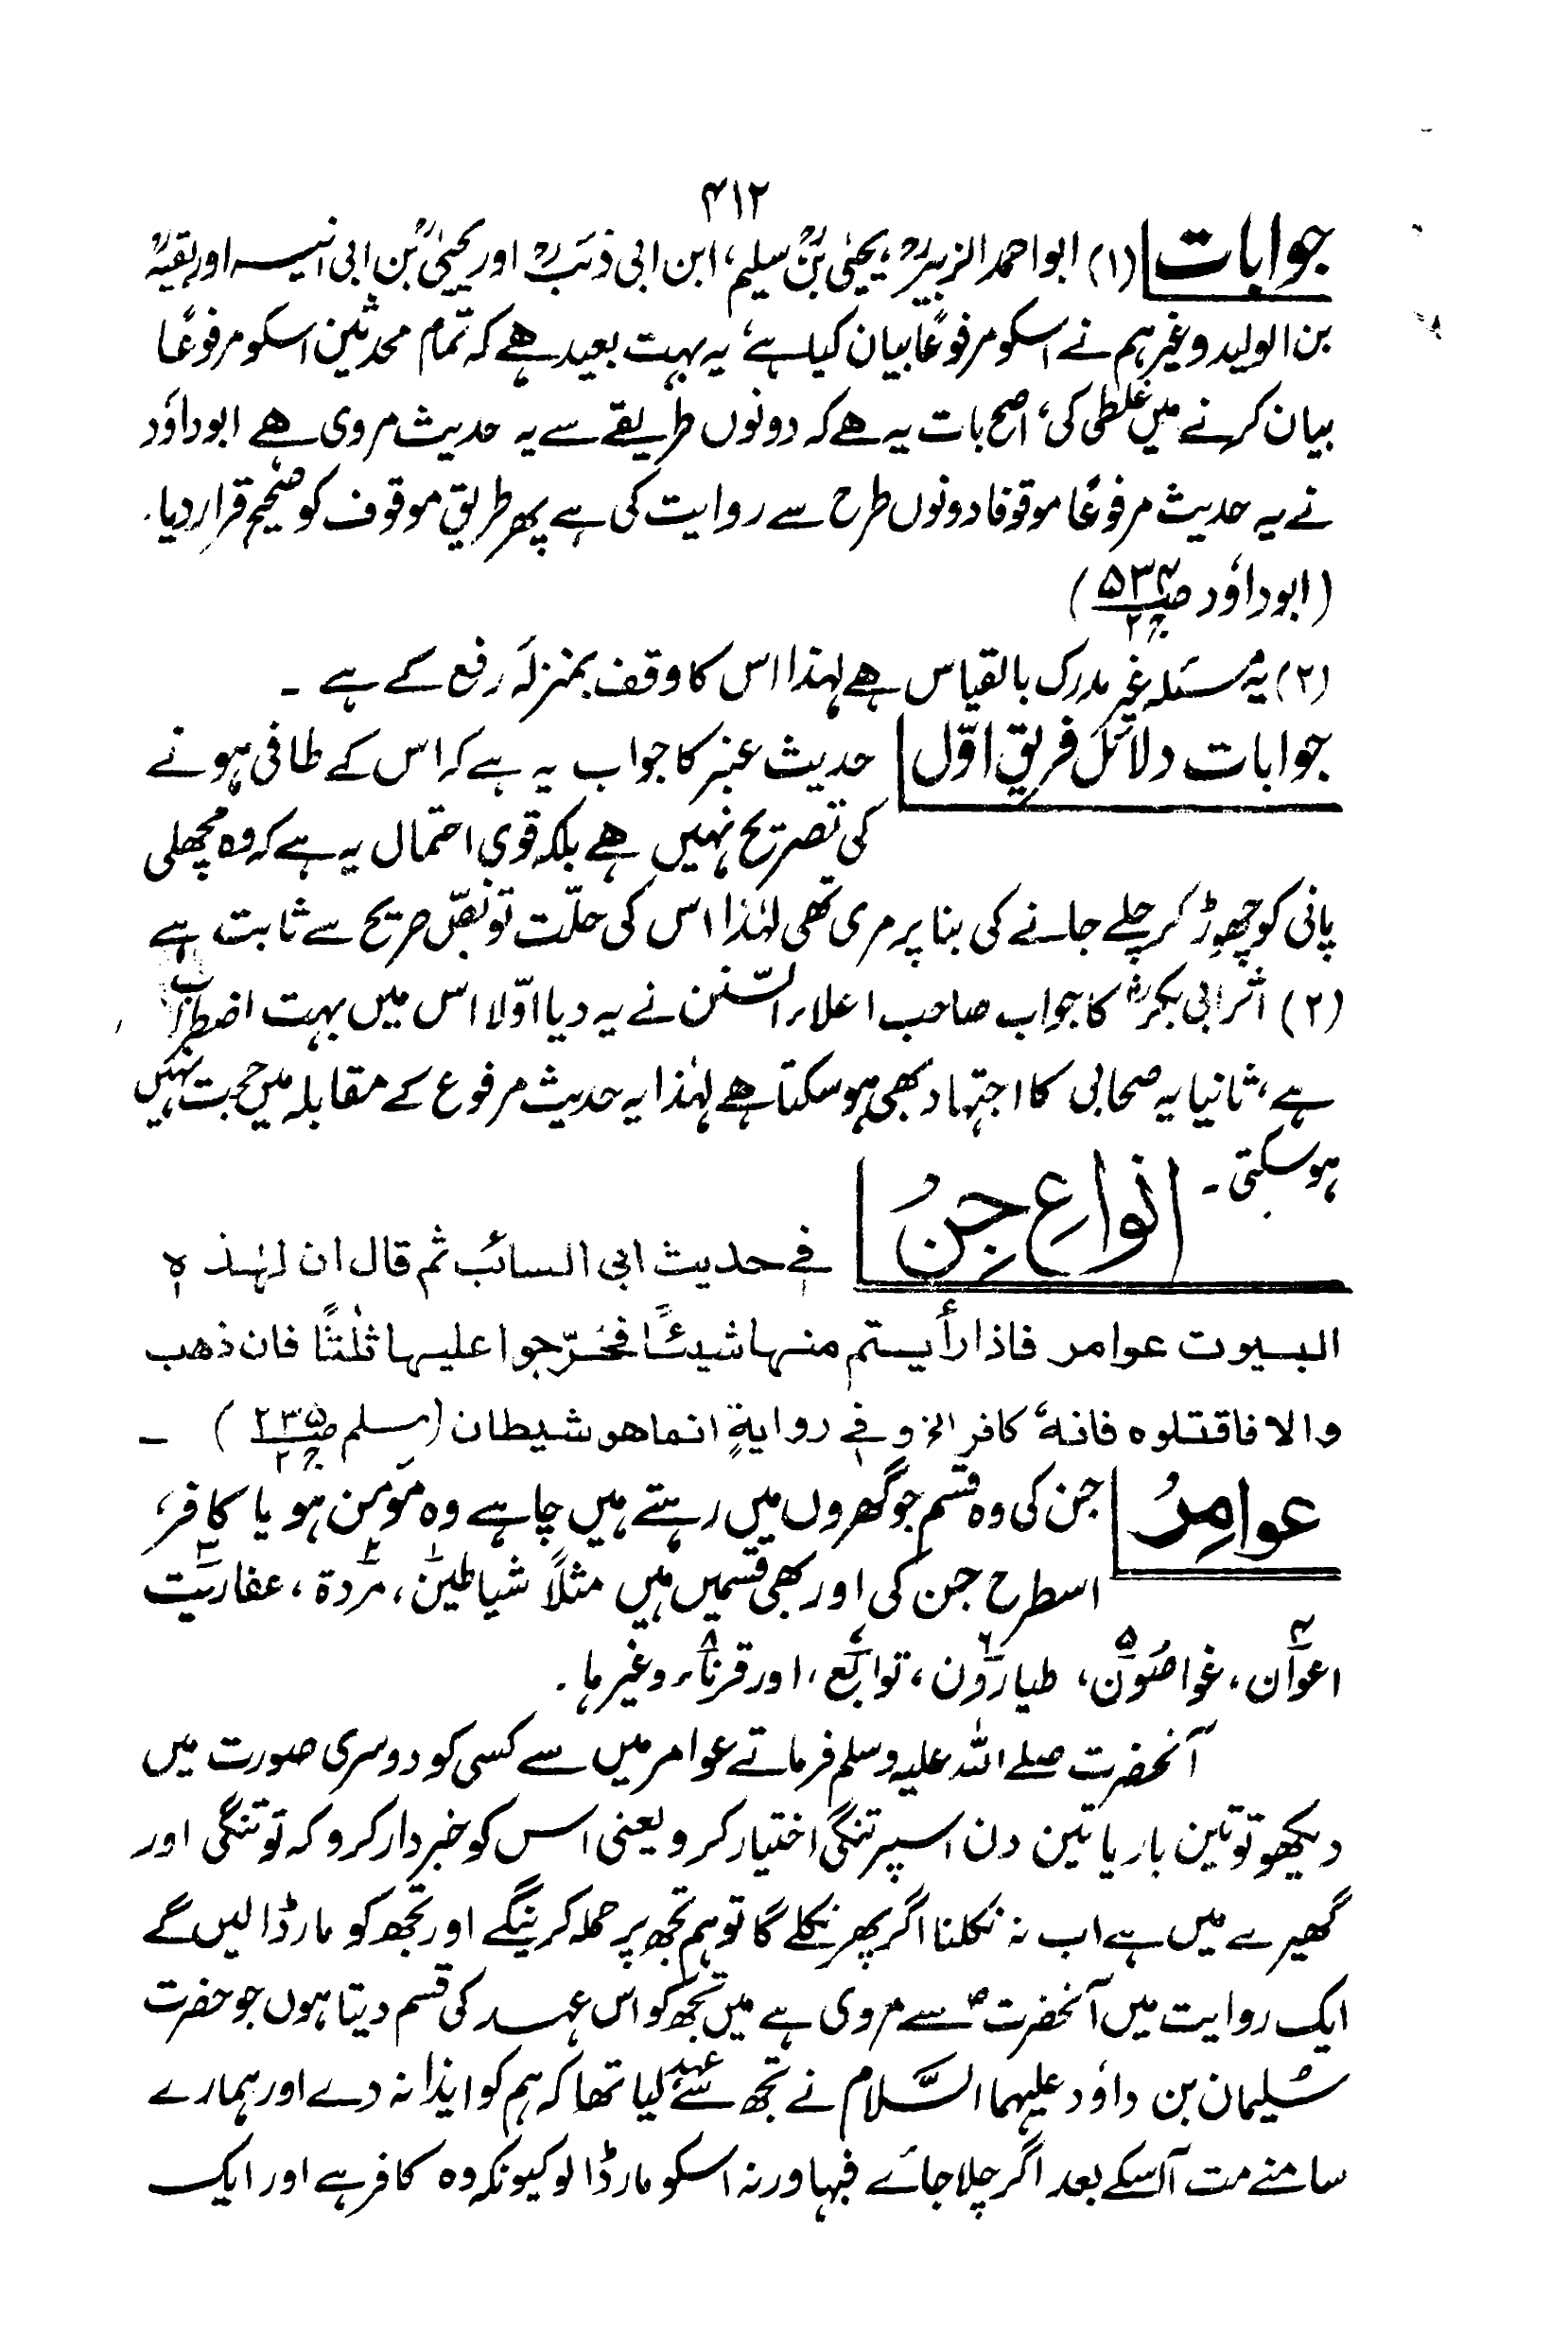 ۴۱۲
جوابات (۱) ابواحمد الزبیرؒ، یحیٰی بنؒ سلیم، ابن ابی ذئبؒ اور یحییٰؒ بن ابی انیسہ اور بقیہؒ
بن الولید وغیرہم نے اسکو مرفوعًا بیان کیا ہے، یہ بہت بعید ہے کہ تمام محدثین اسکو مرفوعًا
بیان کرنے میں غلطی کی، اصح بات یہ ہے کہ دونوں طریقے سے یہ حدیث مروی ہے ابوداؤد
نے یہ حدیث مرفوعًا موقوفا دونوں طرح سے روایت کی ہے پھر طریق موقوف کو صحیح قرار دیا۔
(ابوداؤد ص۵۳۴ ج۲)
(۲) یہ مسئلہ غیر مدرک بالقیاس ہے لہذا اس کا وقف بمنزلۂ رفع کے ہے ۔
جوابات دلائل فریق اوّل حدیث عنبر کا جواب یہ ہے کہ اس کے طافی ہونے
کی تصریح نہیں ہے بلکہ قوی احتمال یہ ہے کہ وہ مچھلی
پانی کو چھوڑ کر چلے جانے کی بنا پر مری تھی لہٰذا اس کی حلّت تو نصّ صریح سے ثابت ہے
(۲) اثر ابی بکرؓ کا جواب صاحب اعلاء السّنن نے یہ دیا اوّلا اس میں بہت اضطراب
ہے، ثانیا یہ صحابی کا اجتہاد بھی ہوسکتا ہے لہٰذا یہ حدیث مرفوع کے مقابلہ میں حجت نہیں
ہوسکتی ۔
انواعِ جِنُ فی حدیث ابی السائب ثم قال ان لہٰذہ
البیوت عوامر فاذا رأیستم منہا شیئًا فحُرّجوا علیہا ثلٰثًا فان ذھب
والا فاقتلوہ فانہٗ کافر الخ وفی روایةٍ انما ھو شیطان (مسلم ص۲۳۵ ج۲) ۔
عوامِرُ جن کی وہ قسم جو گھروں میں رہتے ہیں چاہے وہ مؤمن ہو یا کافر،
اسطرح جن کی اور بھی قسمیں ہیں مثلاً شیاطین۱، مردة۲، عفاریت۳
اعوان۴، غواصُون۵، طیارون۶، توابع۷، اور قرناء۸ وغیرہا۔
آنحضرت صلے اللہ علیہ وسلم فرماتے عوامر میں سے کسی کو دوسری صورت میں
دیکھو تو تین بار یا تین دن اسپر تنگی اختیار کرو یعنی اس کو خبردار کرو کہ تو تنگی اور
گھیرے میں ہے اب نہ نکلنا اگر پھر نکلے گا تو ہم تجھ پر حملہ کرینگے اور تجھ کو مار ڈالیں گے
ایک روایت میں آنحضرتؐ سے مروی ہے میں تجھ کو اس عہد کی قسم دیتا ہوں جو حضرت
سُلیمان بن داؤد علیہما السَّلام نے تجھ سے عہد لیا تھا کہ ہم کو ایذا نہ دے اور ہمارے
سامنے مت آ اسکے بعد اگر چلا جائے فبہا ورنہ اسکو مار ڈالو کیونکہ وہ کافر ہے اور ایک